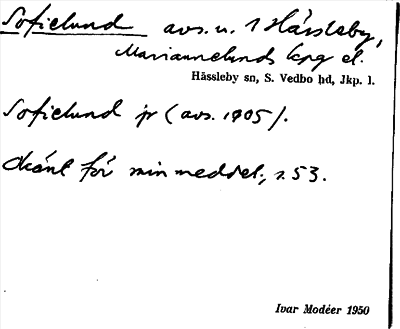 Sofielund avs. u. 1 Hässleby,
Mariannelunds kpg el.
Hässleby sn, S. Vedbo hd, Jkp. l.
Sofielund jr (avs. 1905).
Okänt för min meddel., s. 53.
Ivar Modéer 1950